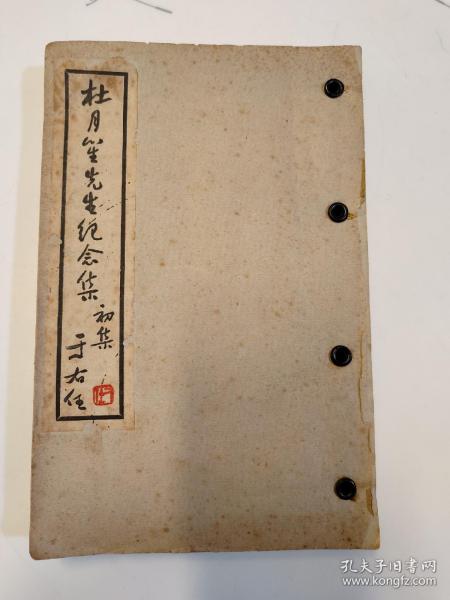 杜月笙先生纪念集
初集
于右任
孔夫子旧书网
www.kongfz.com